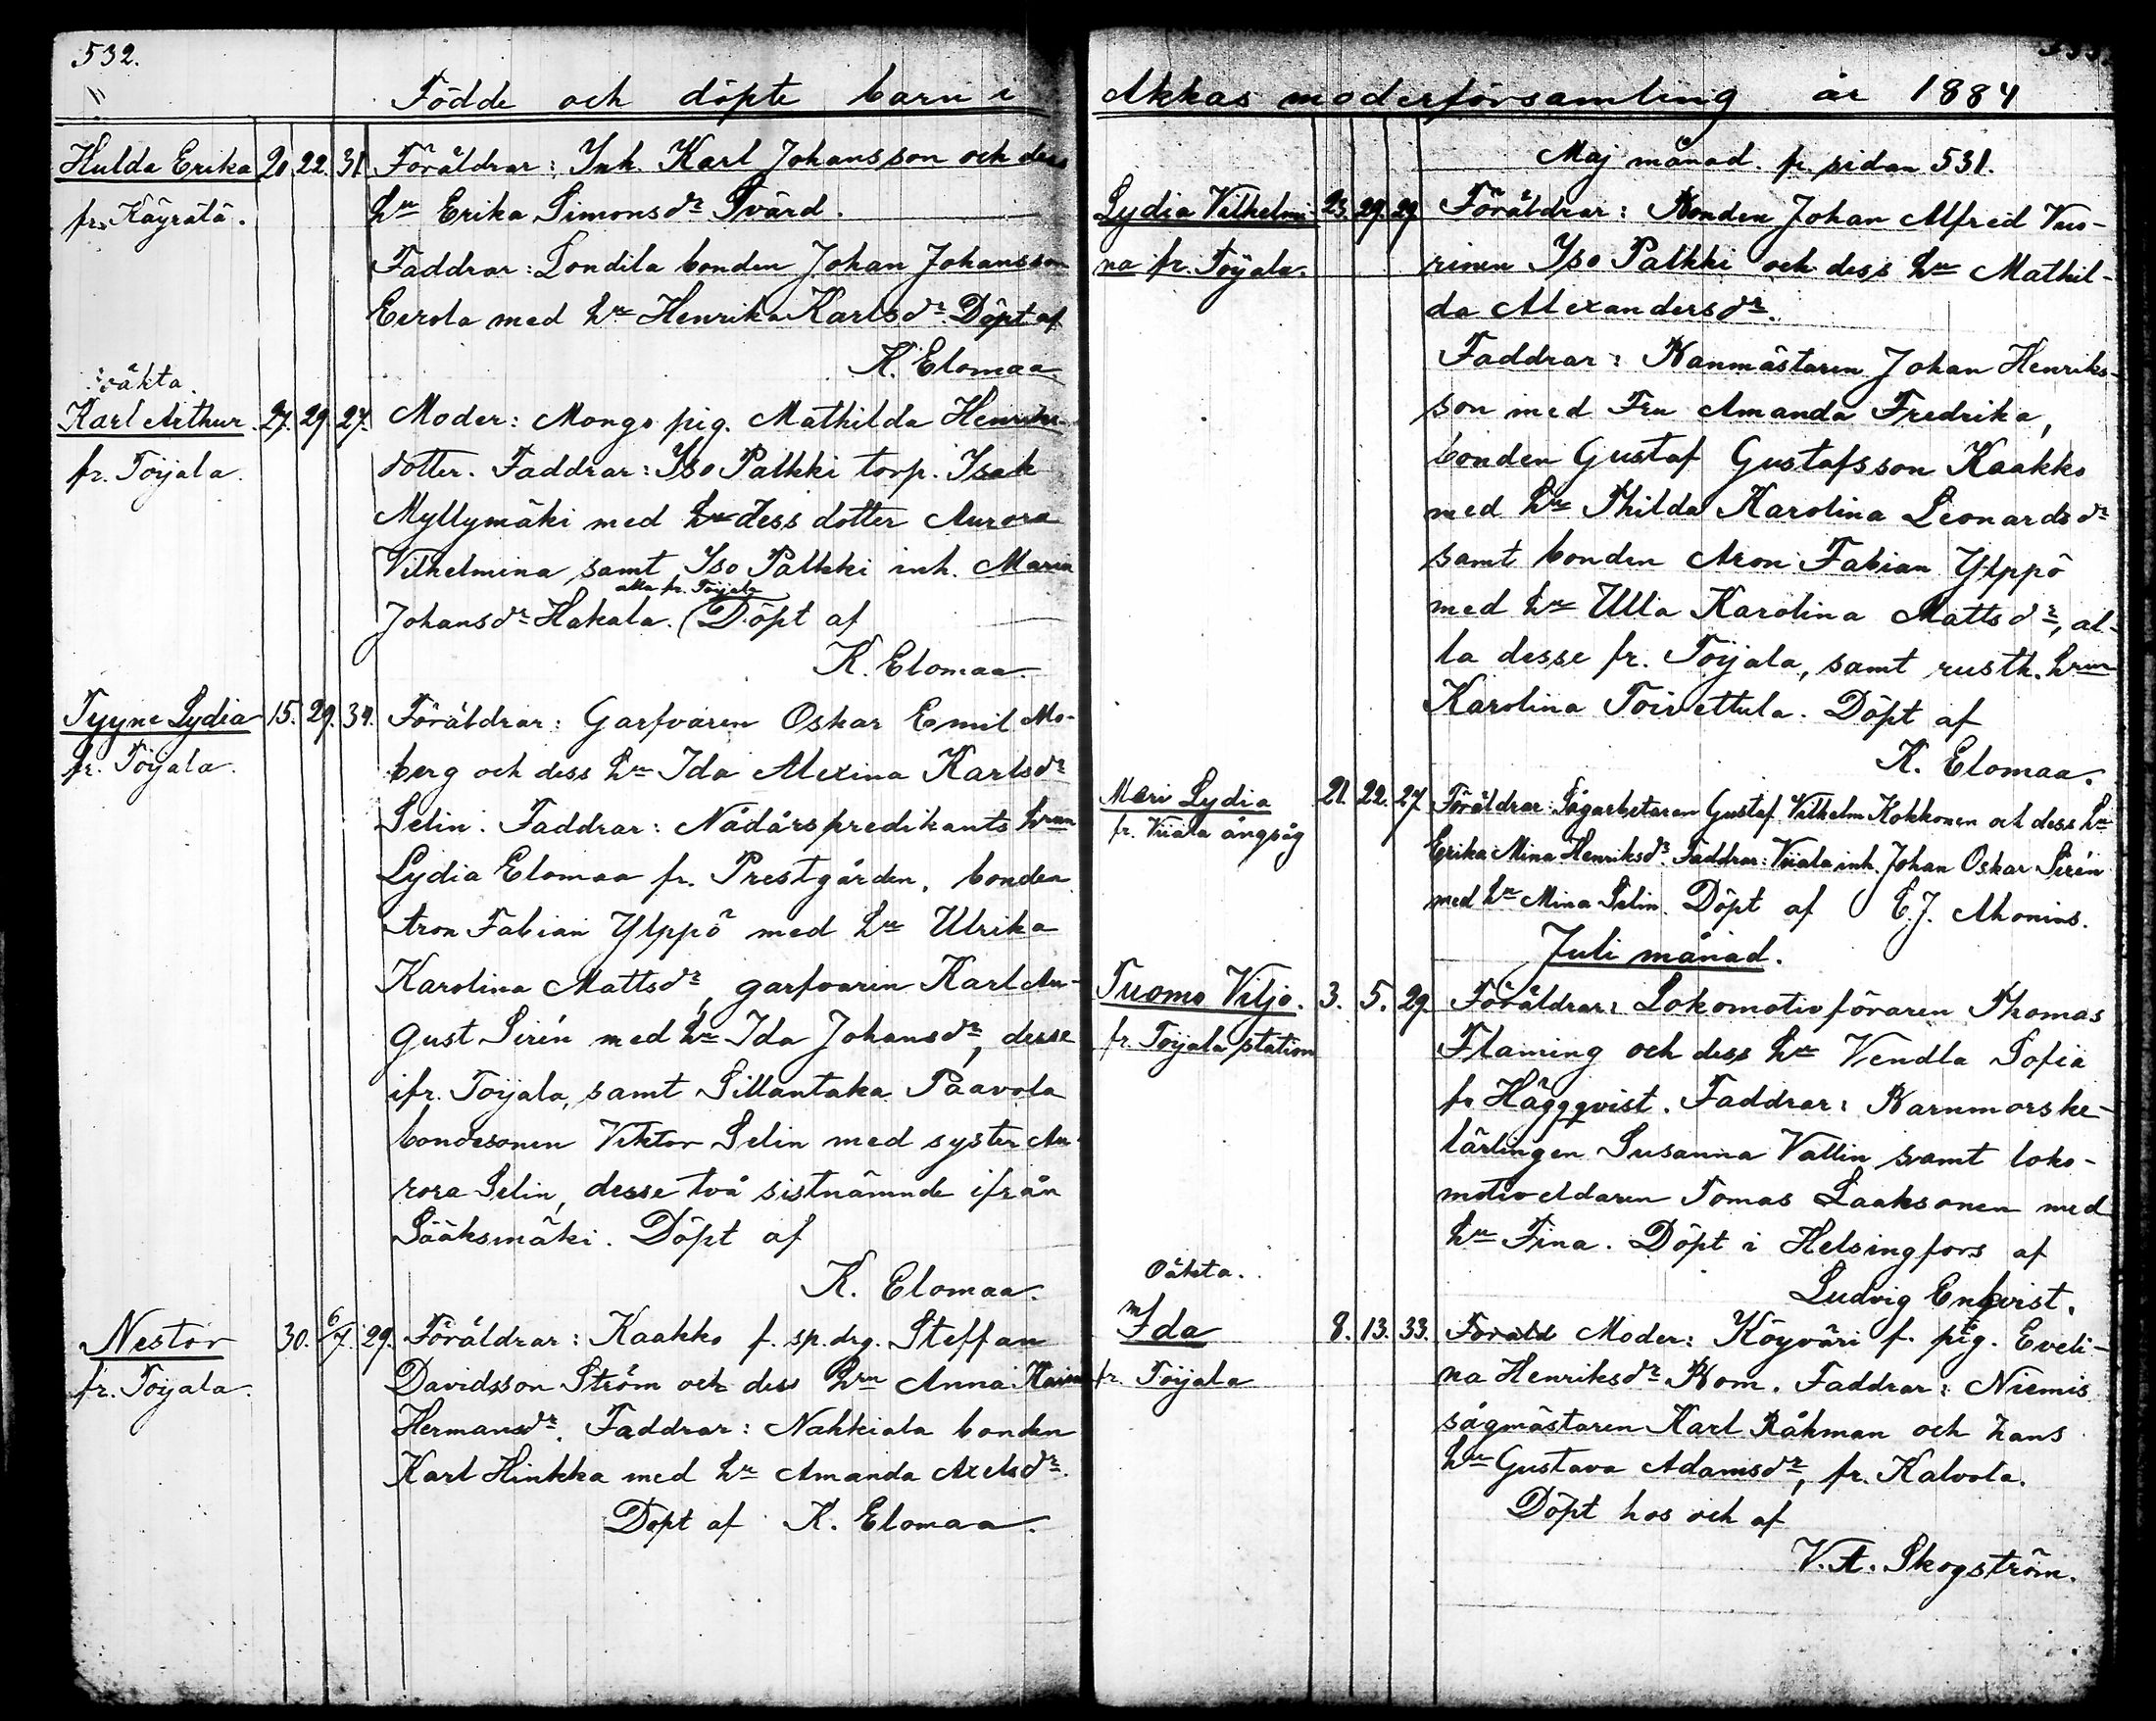 532.
Födde och döpte barn i
Hulda Erika 20. 22. 31. Föräldrar: Inh. Karl Johansson och dess
fr. Käyrälä. hu Erika Simonsdr Svärd.
Faddrar: Sondila bonden Johan Johansson
Eerola med hu Henrika Karlsdr. Döpt af
K. Elomaa.
oäkta.
Karl Arthur 27. 29. 27. Moder: Mongo pig. Mathilda Henriks-
fr. Toijala. dotter. Faddrar: Iso Palkki torp. Isak
Myllymäki med hu dess dotter Aurora
Vilhelmina samt Iso Palkki inh. Maria
alla fr. Toijala
Johansdr Hakala. (Döpt af
K. Elomaa.
Tyyne Lydia 15. 29. 34. Föräldrar: Garfvaren Oskar Emil Mo-
fr. Toijala. berg och dess hu Ida Alexina Karlsdr
Selin. Faddrar: Nådårspredikants hrun
Lydia Elomaa fr. Prestgården, bonden
Aron Fabian Ylppö med hu Ulrika
Karolina Mattsdr, garfvaren Karl Au-
gust Sirén med hu Ida Johansdr, desse
ifr. Toijala, samt Sillantaka Paavola
bondesonen Viktor Selin med syster Au-
rora Selin, desse två sistnämnde ifrån
Sääksmäki. Döpt af
K. Elomaa.
Nestor 30. 6/7. 29. Föräldrar: Kaakko f. sp.drg. Steffan
fr. Toijala. Davidsson Ström och dess hru Anna Kaisa
Hermansdr. Faddrar: Nahkiala bonden
Karl Hinkka med hu Amanda Axelsdr.
Döpt af K. Elomaa.
Akkas moderförsamling år 1884
Maj månad. fr. sidan 531.
Lydia Vilhelmi- 23. 29. 29. Föräldrar: Bonden Johan Alfred Vuo-
na fr. Toijala. rinen Iso Palkki och dess hu Mathil-
da Alexandersdr.
Faddrar: Banmästaren Johan Henriks-
son med Fru Amanda Fredrika,
bonden Gustaf Gustafsson Kaakko
med hu Thilda Karolina Leonardsdr
samt bonden Aron Fabian Ylppö
med hu Ulla Karolina Mattsdr, al-
la desse fr. Toijala, samt rusth. hrun
Karolina Toivettula. Döpt af
K. Elomaa.
Meri Lydia 21. 22. 27. Föräldrar: Sågarbetaren Gustaf Vilhelm Kokkonen och dess hu
fr. Viiala ångsåg Erika Mina Henriksdr. Faddrar: Viiala inh. Johan Oskar Sirén
med hu Mina Selin. Döpt af E. J. Ahonius.
Juli månad.
Tuomo Viljo. 3. 5. 29. Föräldrar: Lokomotivföraren Thomas
fr. Toijala station Flaming och dess hu Vendla Sofia
f. Häggqvist. Faddrar: Barnmorske-
lärlingen Susanna Vallin samt loko-
motiveldaren Tomas Laaksonen med
hu Fina. Döpt i Helsingfors af
Ludvig Enqvist.
Oäkta.
Ida 8. 13. 33. Föräld Moder: Köyväri f. pig. Eveli-
fr. Toijala na Henriksdr Bom. Faddrar: Niemis
sågmästaren Karl Råhman och hans
hu Gustava Adamsdr, fr. Kalvola.
Döpt hos och af
V. A. Skogström.